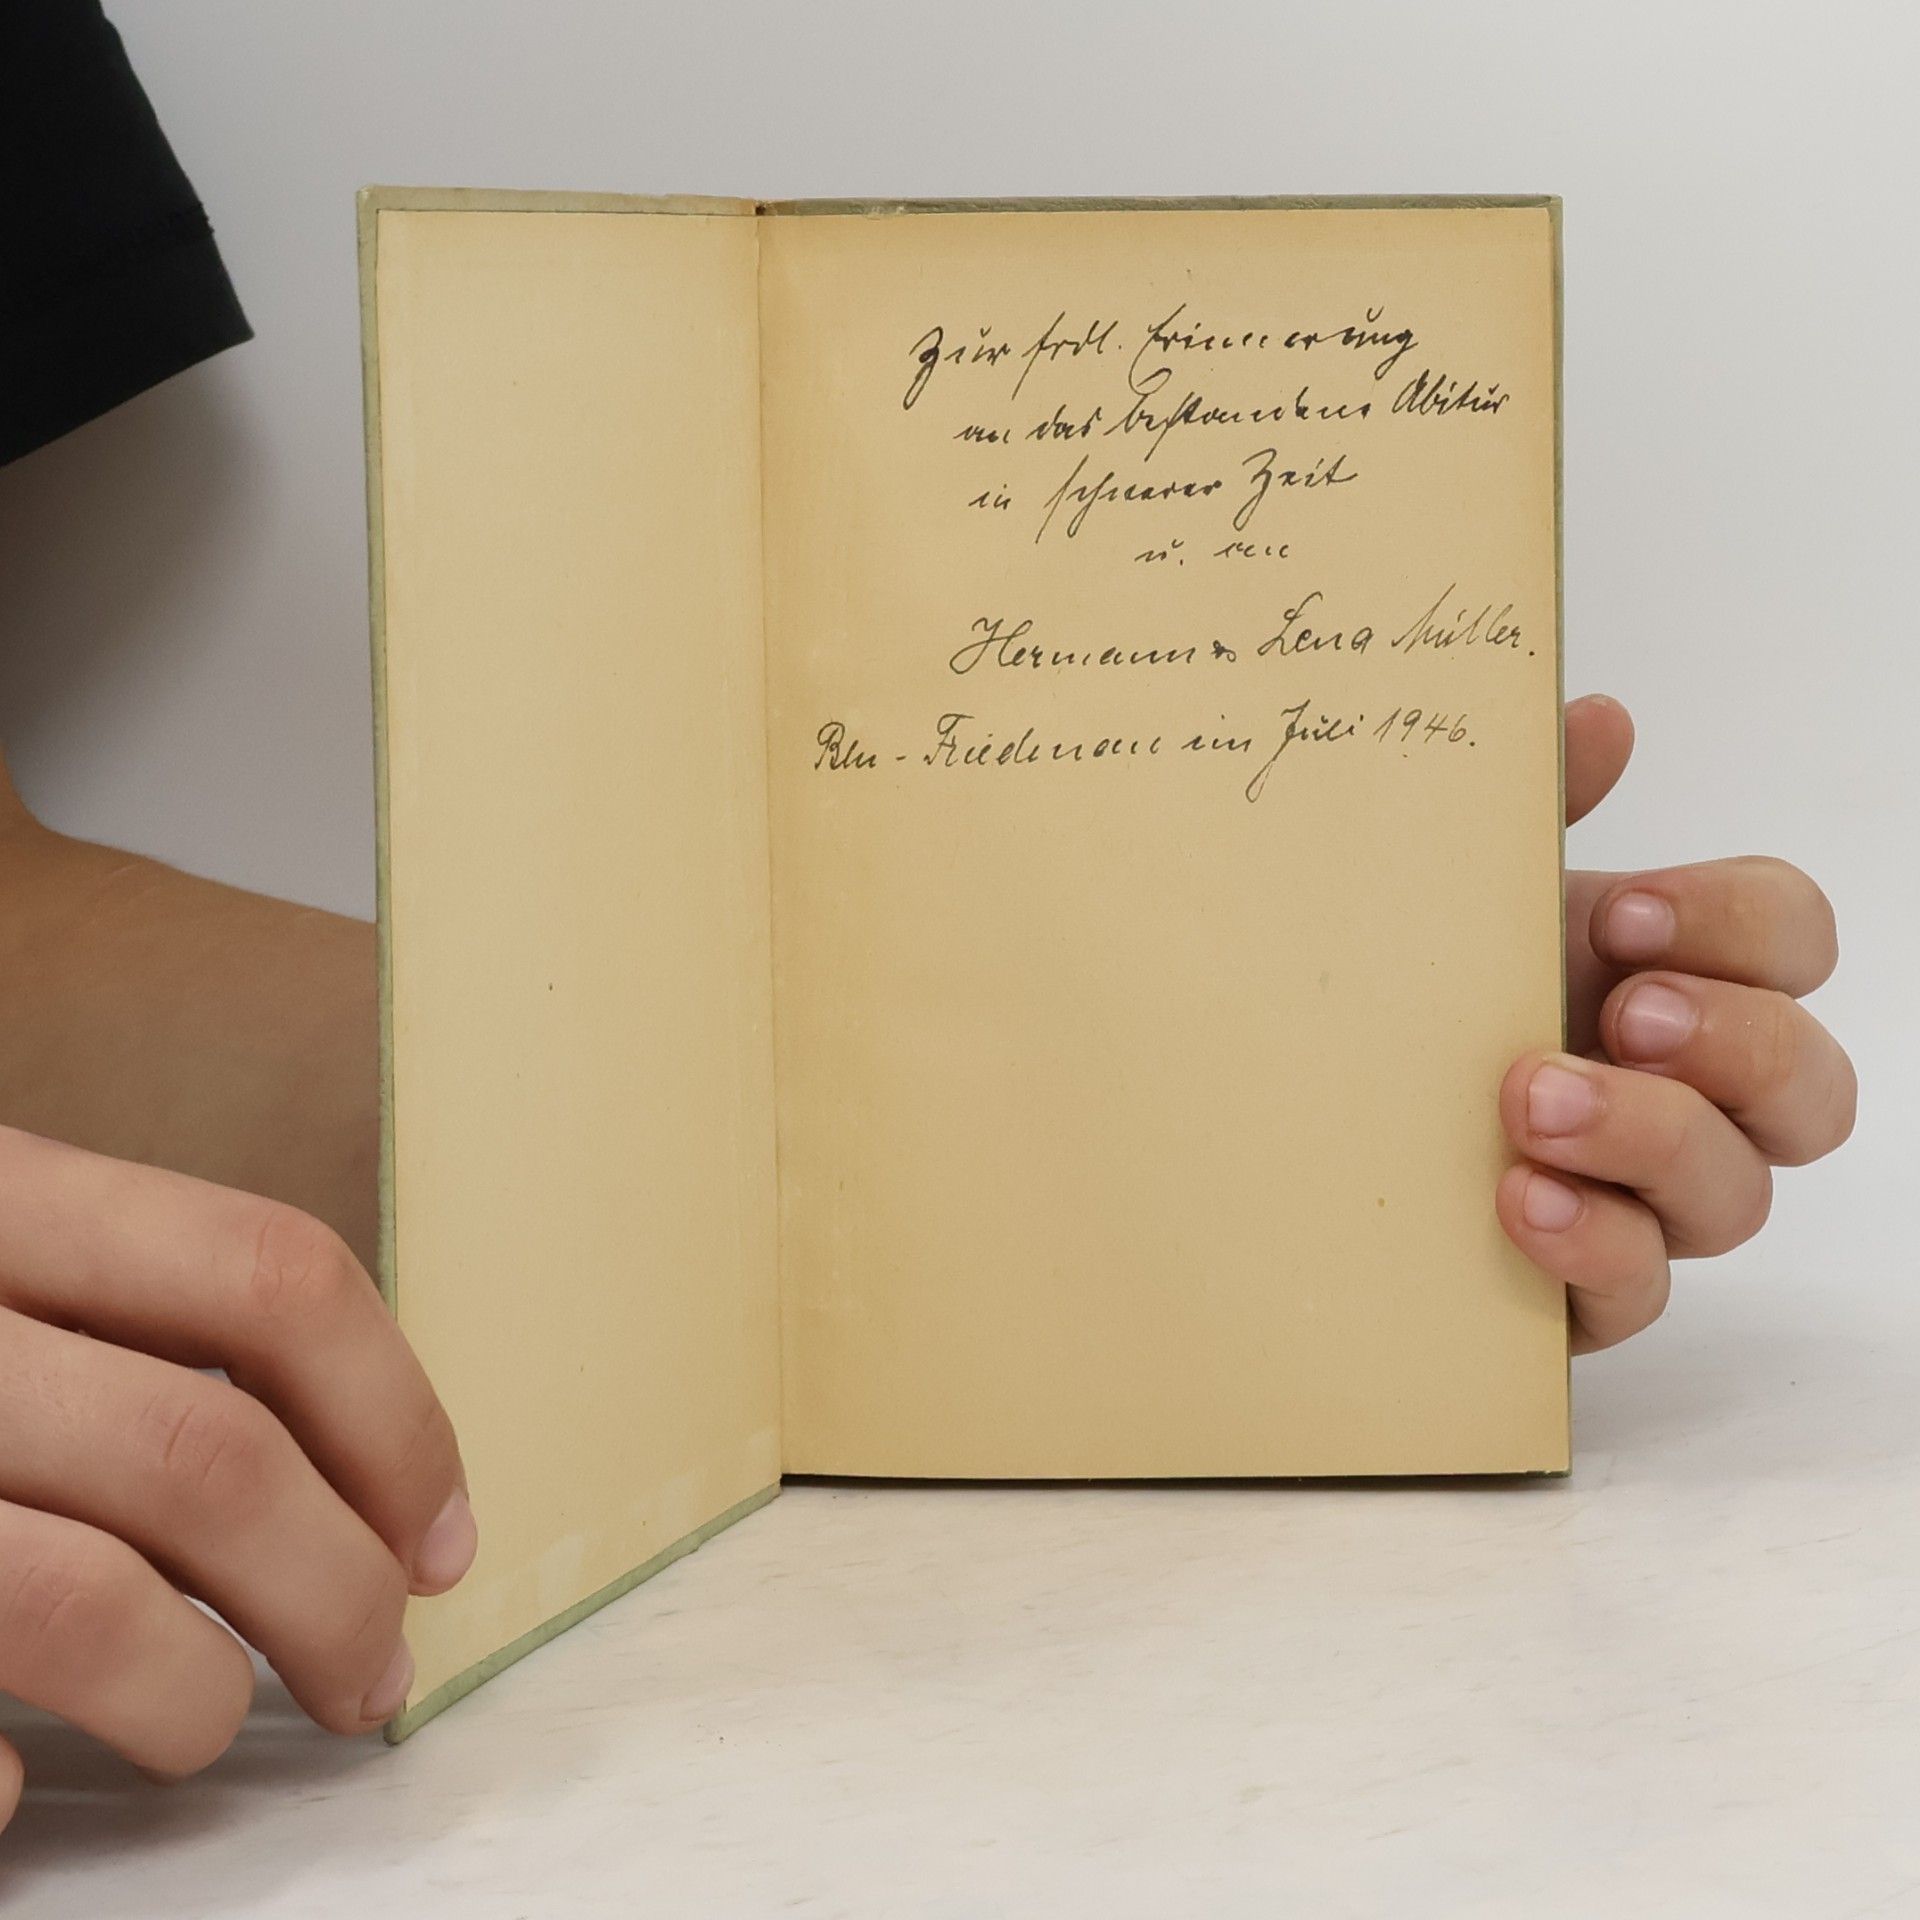 Zur frdl. Erinnerung
an das bestandene Abitur
in schwerer Zeit
u. an
Hermann & Lena Müller.
Bln - Friedenau im Juli 1946.